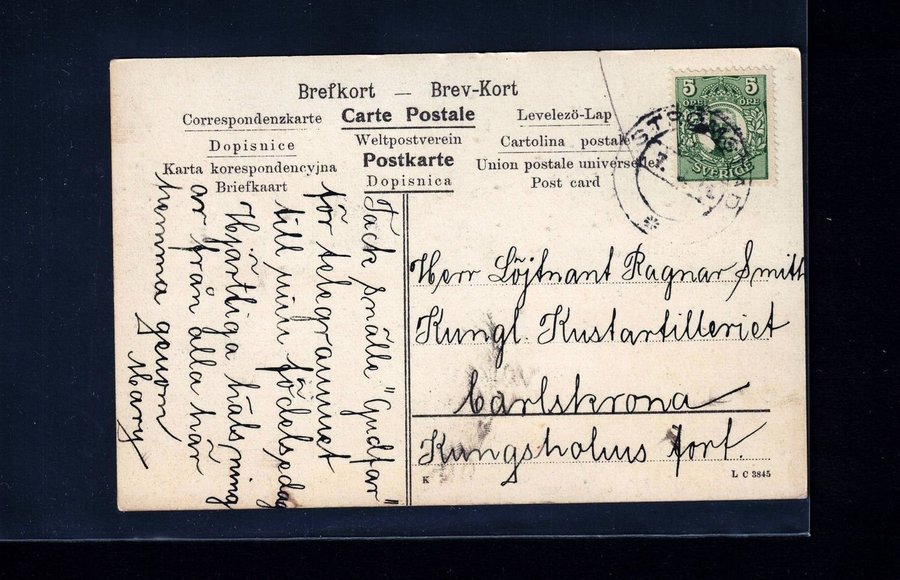 Brefkort — Brev-Kort
Correspondenzkarte Carte Postale Levelezö-Lap
Dopisnice Weltpostverein Cartolina postale
Karta korespondencyjna Postkarte Union postale universelle
Briefkaart Dopisnica Post card
5 5
ÖRE ÖRE
SVERIGE
STRÖMSTAD
Tack snälle "Gudfar"
för telegrammet
till min födelsedag
Hjärtliga hälsning
ar från alla här
hemma genom
Mary
Herr Löjtnant Ragnar Smitt
Kungl. Kustartilleriet
Carlskrona
Kungsholms fort.
K
L C 3845